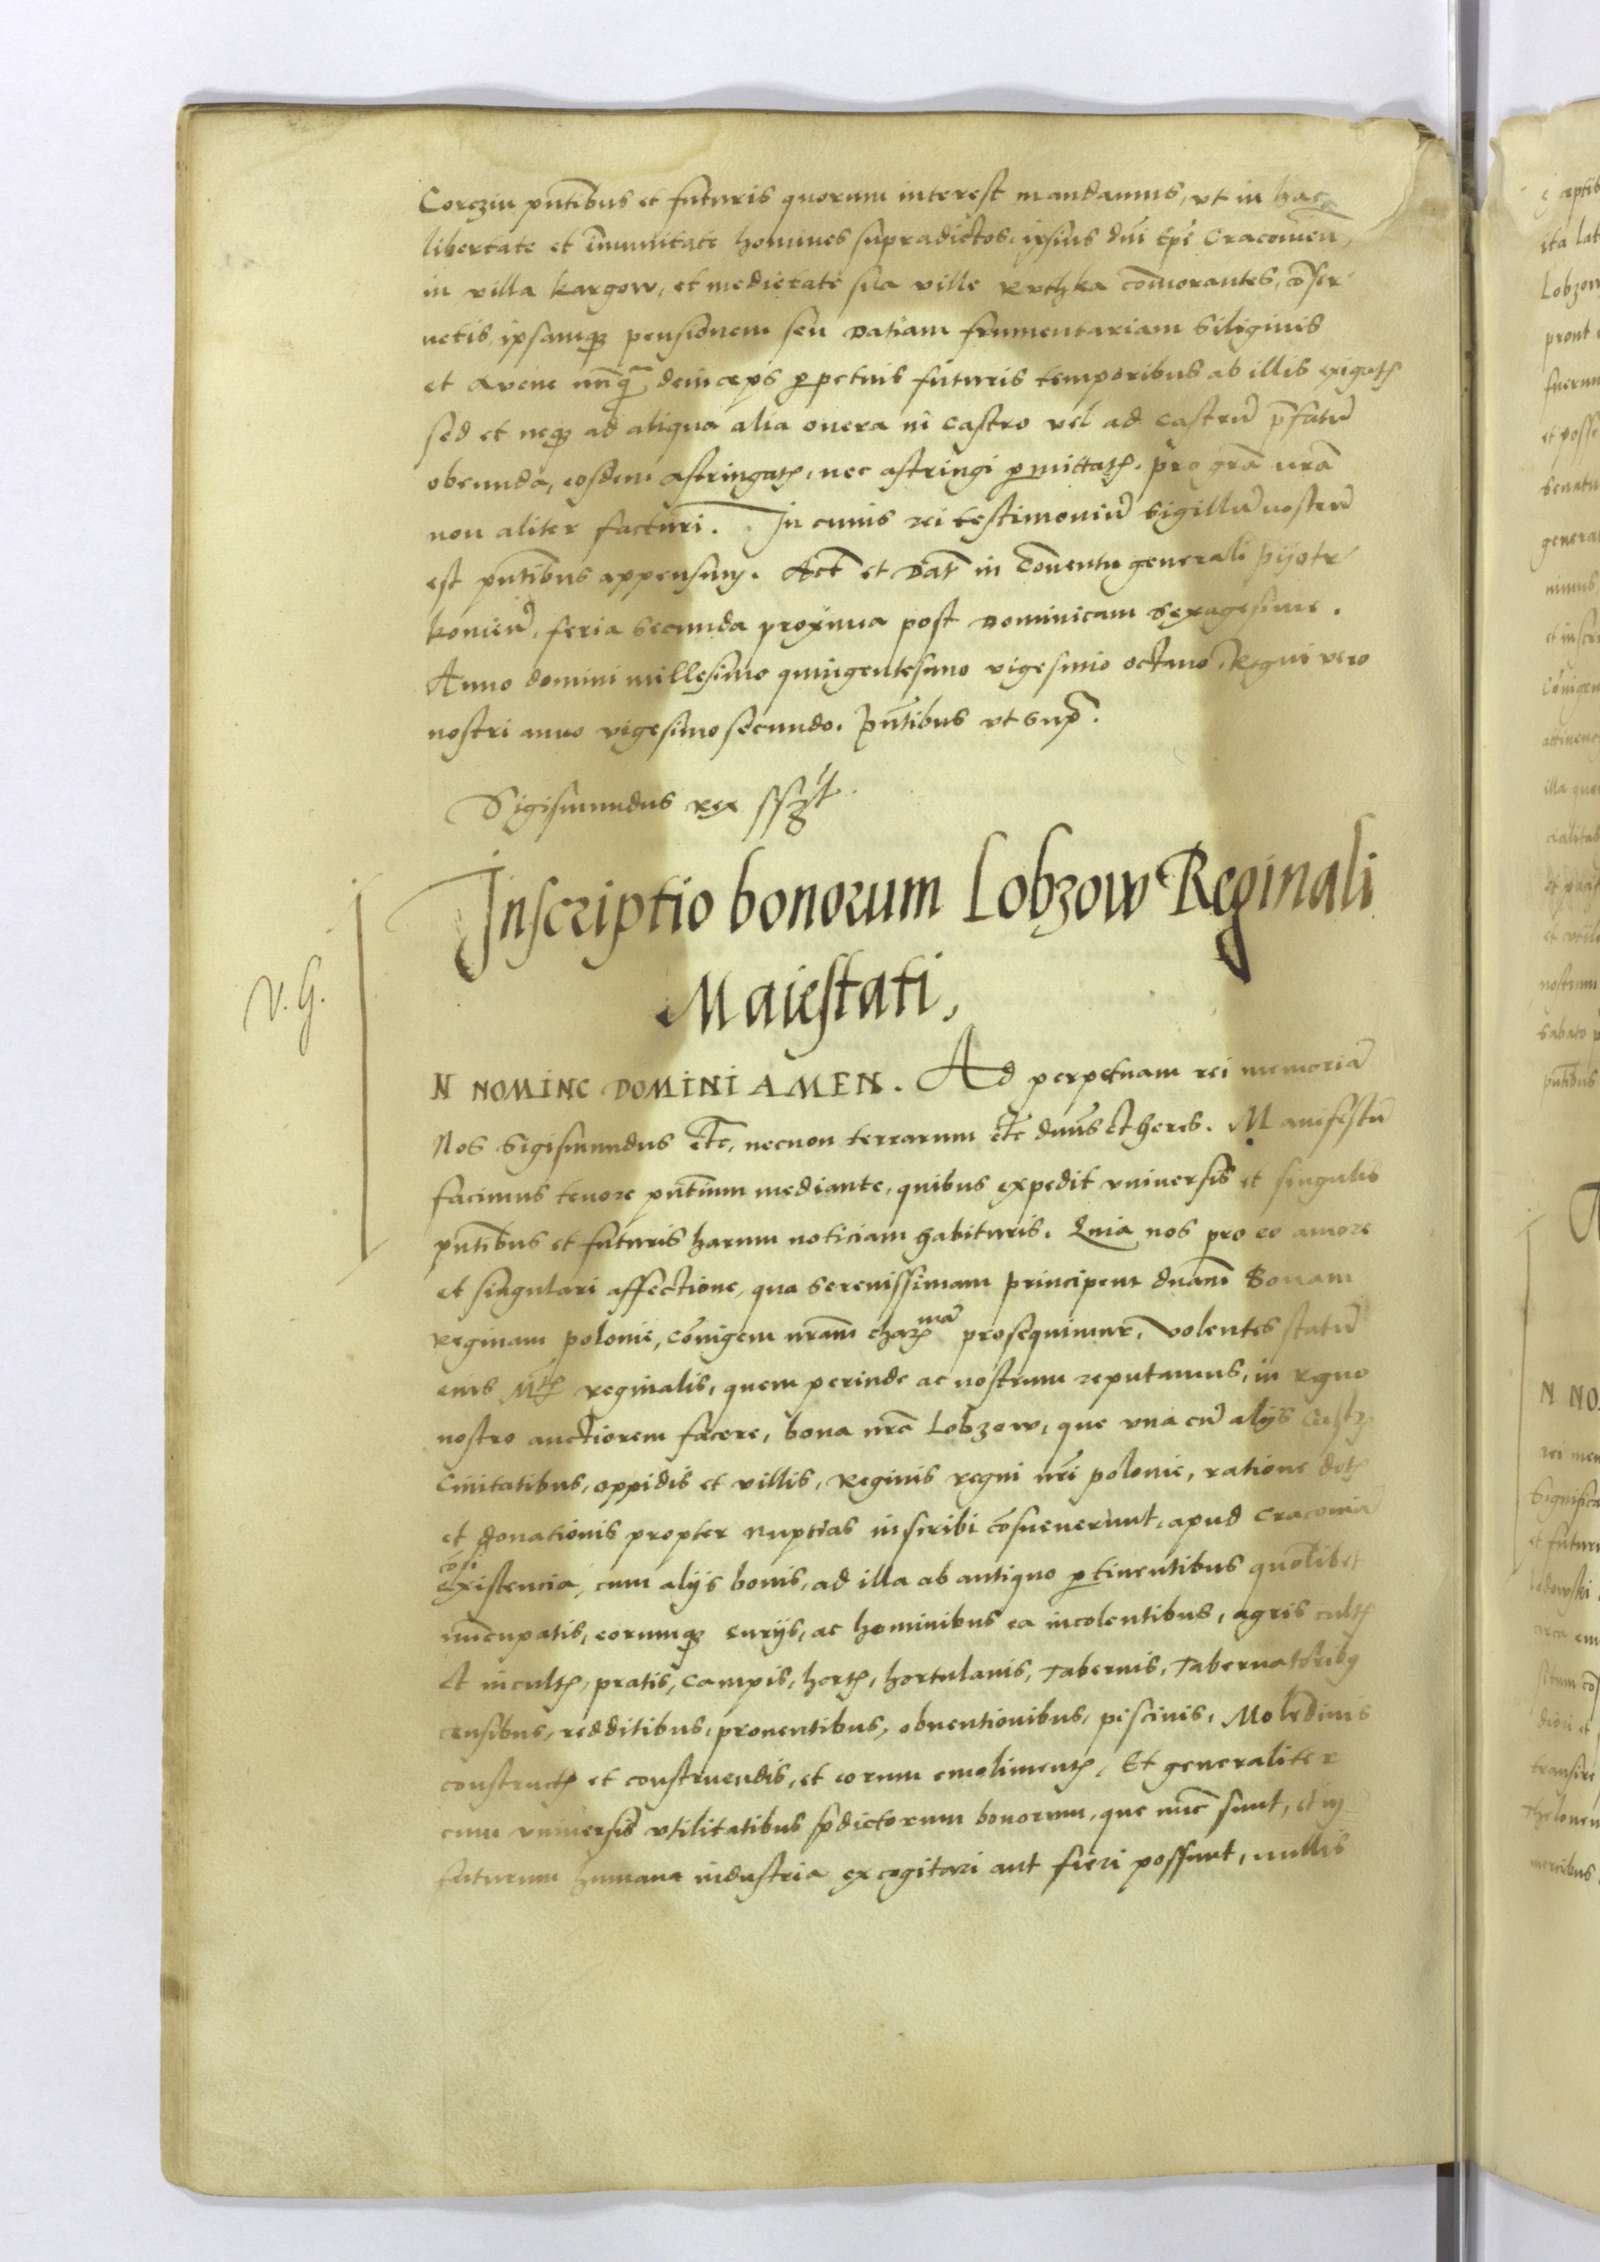 Corczin pñtibus et futuris quorum interest mandamus, vt in hac
libertate et īmunitate homines supradictos, ipsius dñi Epi Cracovień,
in villa kargow, et medietate sila ville Ruthka cōmorantes, cōser-
uetis, ipsamqȝ pensionem seu Datiam frumentariam siliginis
et Avene nūq̄, deinceps ꝑpetuis futuris temporibus ab illis exigatꝭ
sed et neqȝ ad aliqua alia onera in Castro vel ad Castrū p̄fatū
obeunda, eosdem astringatꝭ, nec astringi ꝑmittatꝭ. pro grā nrā
non aliter facturi. In cuius rei testimoniū Sigillū nostrū
est pñtibus appensum. Act̄ et Dat̄ in Cōuentu generali pijotr-
konień, feria Secunda proxima post Dominicam Sexagesime.
Anno domini millesimo quingentesimo vigesimo octauo, Regni vero
nostri anno vigesimo secundo. pñtibus vt sup̄.
Sigismundus rex sszt
Inscriptio bonorum Lobzow Reginali
Maiestati,
V. G.
N NOMINE DOMINI AMEN. Ad perpetuam rei memoriā
Nos Sigismundus etc, necnon terrarum etc dnūs et heres. Manifestū
facimus tenore pñtium mediante, quibus expedit vniuersis et singulis
pñtibus et futuris harum noticiam habituris. Quia nos pro eo amore
et singulari affectione, qua Serenissimam principem dnam Bonam
Reginam polonie, Cōiugem nram charꝭmā prosequimur, Volentes statū
eius Mtꝭ reginalis, quem perinde ac nostrum reputamus, in Regno
nostro auctiorem facere, bona nra Lobzow, que vna cū alijs Castrꝭ
Ciuitatibus, oppidis et villis, Reginis regni nri polonie, ratione dotꝭ
et donationis propter nuptias inscribi cōsueuerunt, apud Cracouiā
cōsi
existencia, cum alijs bonis, ad illa ab antiquo ꝑtinentibus quōlibet
nūcupatis, eorumqȝ curijs, ac hominibus ea incolentibus, agris cultꝭ
Et incultꝭ, pratis, Campis, hortꝭ, hortulanis, Tabernis, Tabernatoribꝰ
censibus, redditibus, prouentibus, obuentionibus, piscinis, Molēdinis
constructꝭ et construendis, et eorum emolimentꝭ, Et generaliter
cum vniuersis vtilitatibus p̄dictorum bonorum, que nūc sunt, et in
futurum humana industria excogitari aut fieri possunt, nullis